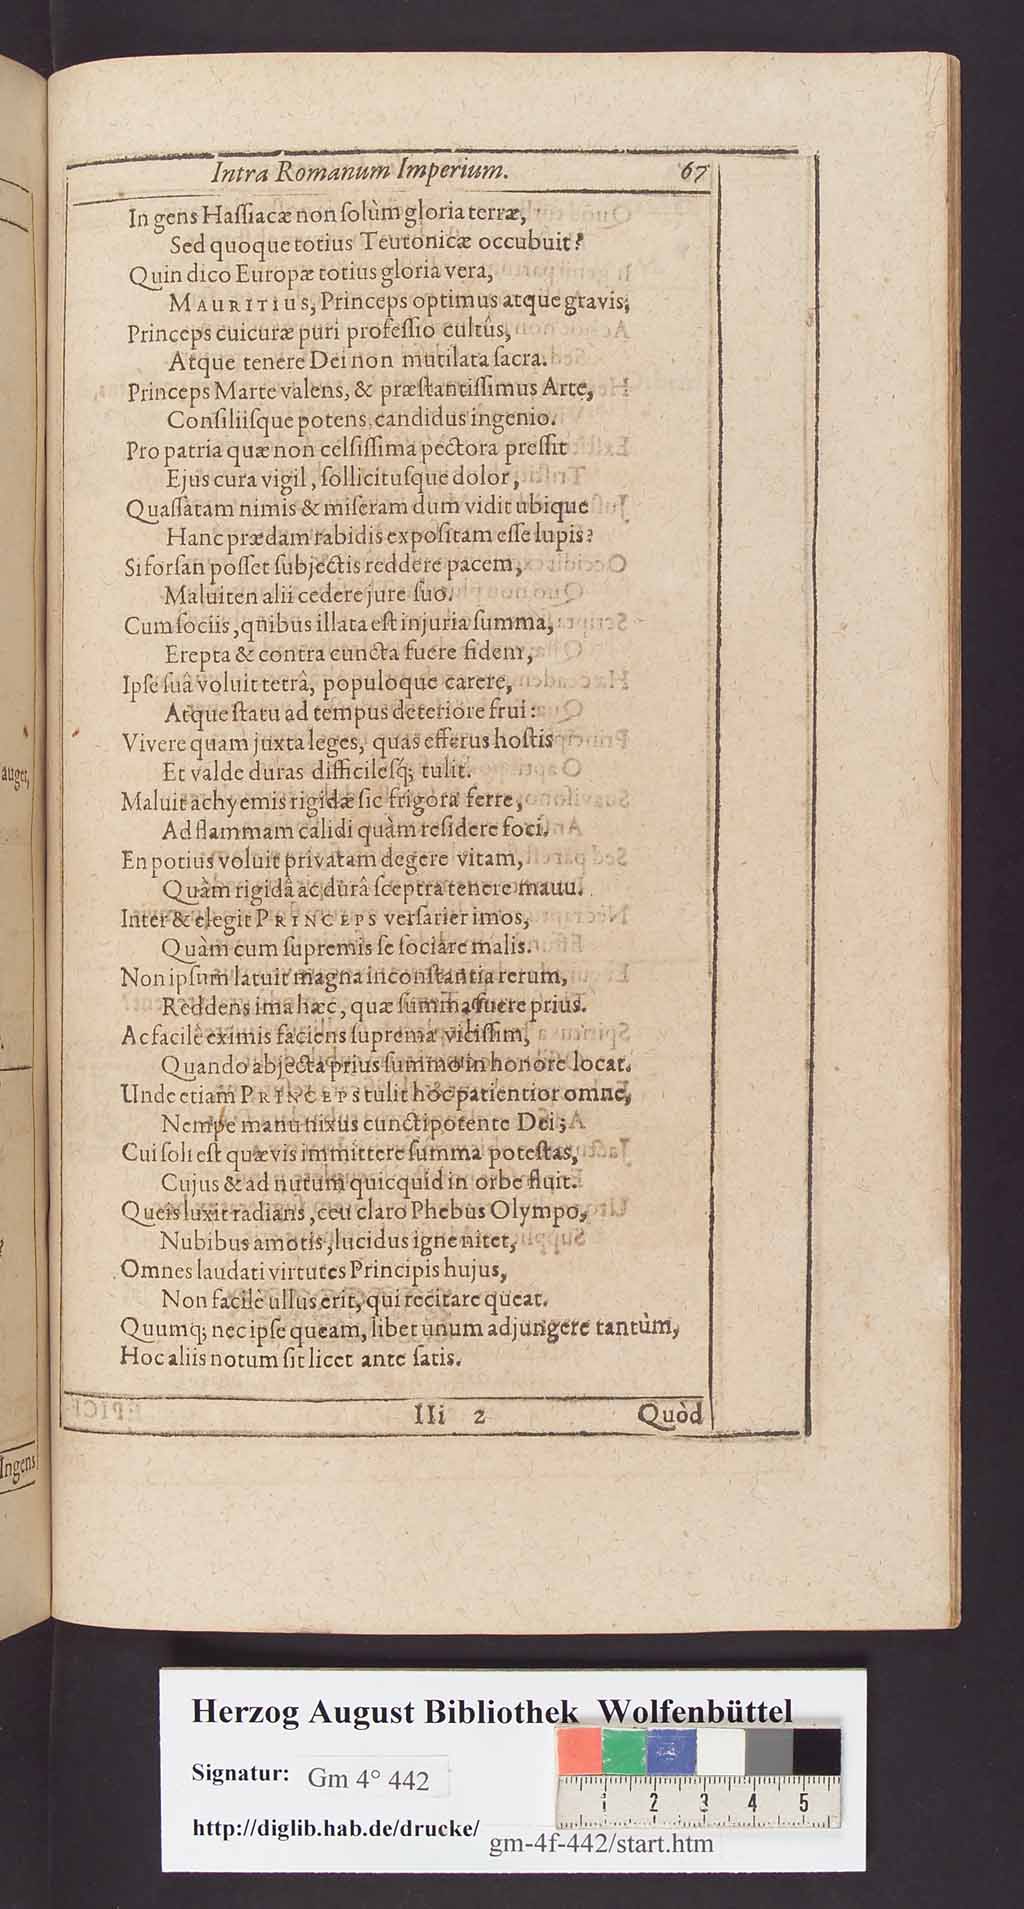 Intra Romanum Imperium. 67
In gens Haſſiacæ non ſolùm gloria terræ,
Sed quoque totius Teutonicæ occubuit?
Quin dico Europæ totius gloria vera,
MAURITIUS, Princeps optimus atque gravis;
Princeps cui curæ puri profeſſio cultûs,
Atque tenere Dei non mutilata ſacra.
Princeps Marte valens, & præſtantiſſimus Arte,
Conſiliiſque potens, candidus ingenio.
Pro patria quæ non celſiſſima pectora preſſit
Ejus cura vigil, ſollicituſque dolor,
Quaſſatam nimis & miſeram dum vidit ubique
Hanc prædam rabidis expoſitam eſſe lupis?
Si forſan poſſet ſubjectis reddere pacem,
Maluit en alii cedere jure ſuo.
Cum ſociis, quibus illata eſt injuria ſumma,
Erepta & contra cuncta fuere fidem,
Ipſe ſuâ voluit terrâ, populoque carere,
Atque ſtatu ad tempus deteriore frui:
Vivere quam juxta leges, quas efferus hoſtis
Et valde duras difficileſq; tulit.
Maluit ac hyemis rigidæ ſic frigora ferre,
Ad flammam calidi quàm reſidere foci.
En potius voluit privatam degere vitam,
Quàm rigidâ ac durâ ſceptra tenere manu.
Inter & elegit PRINCEPS verſarier imos,
Quàm cum ſupremis ſe ſociare malis.
Non ipſum latuit magna inconſtantia rerum,
Reddens ima hæc, quæ ſumma fuere prius.
Ac facilè eximis faciens ſuprema viciſſim,
Quando abjecta prius ſummo in honore locat.
Unde etiam PRINCEPS tulit hoc patientior omne,
Nempe manu nixus cunctipotente Dei;
Cui ſoli eſt quævis immittere ſumma poteſtas,
Cujus & ad nutum quicquid in orbe fluit.
Queîs luxit radians, ceu claro Phebus Olympo,
Nubibus amotis, lucidus igne nitet,
Omnes laudati virtutes Principis hujus,
Non facilè ullus erit, qui recitare queat.
Quumq; nec ipſe queam, libet unum adjungere tantùm,
Hoc aliis notum ſit licet ante ſatis.
IIi 2 Quòd
auget,
Ingens
Herzog August Bibliothek Wolfenbüttel
Signatur: Gm 4° 442
http://diglib.hab.de/drucke/ gm-4f-442/start.htm
1 2 3 4 5